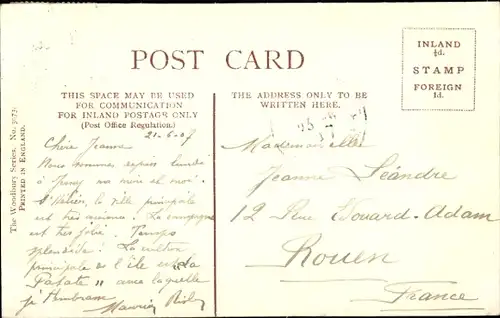 POST CARD
INLAND
½d.
STAMP
FOREIGN
1d.
THIS SPACE MAY BE USED
FOR COMMUNICATION
FOR INLAND POSTAGE ONLY
(Post Office Regulation)
THE ADDRESS ONLY TO BE
WRITTEN HERE.
The Woodbury Series. No.
PRINTED IN ENGLAND.
21-6-07
Chère Jeanne
Nous sommes depuis lundi
à Jersey ma mère et moi.
St Hélier, la ville principale
est très animée. La campagne
est très jolie. Temps
splendide. La culture
principale de l'île est la
Patate " avec laquelle
je t'embrasse
Maurice
Mademoiselle
Jeanne Léandre
12 Rue Edouard-Adam
Rouen
France